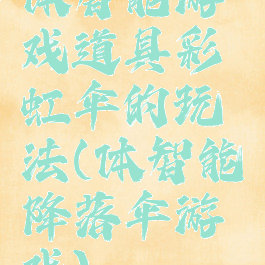 体智能游
戏道具彩
虹伞的玩
法(体智能
降落伞游
戏)